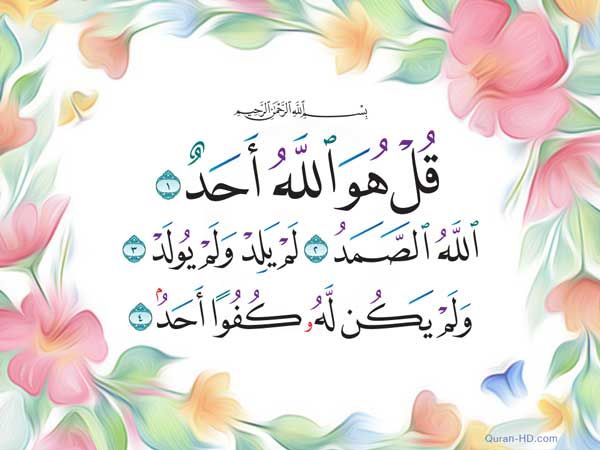 بِسْمِ ٱللَّهِ ٱلرَّحْمَٰنِ ٱلرَّحِيمِ
قُلْ هُوَ ٱللَّهُ أَحَدٌ ١
ٱللَّهُ ٱلصَّمَدُ ٢ لَمْ يَلِدْ وَلَمْ يُولَدْ ٣
وَلَمْ يَكُن لَّهُۥ كُفُوًا أَحَدٌۢ ٤
Quran-HD.com